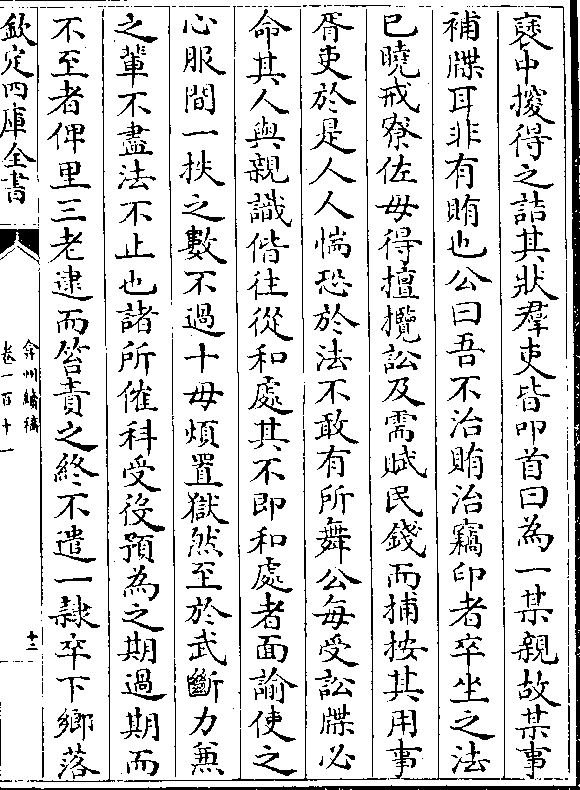 褎中搜得之詰其狀羣吏皆叩首曰為一某親故某事
補牒耳非有賄也公曰吾不治賄治竊印者卒坐之法
已曉戒寮佐毋得擅攬訟及需賦民錢而捕按其用事
胥吏於是人人惴恐於法不敢有所舞公每受訟牒必
命其人與親識偕往從和處其不即和處者面諭使之
心服間一抶之數不過十毋煩置獄然至於武斷力兼
之輩不盡法不止也諸所催科受役預為之期過期而
不至者俾里三老逮而笞責之終不遣一隸卒下鄉落
欽定四庫全書
弇州續稿
卷一百十一
十二